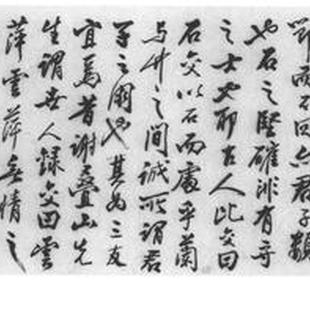 君子類
也石之堅確非有奇
之士也耶古人比交曰
石交以石而處乎蘭
与竹之間誠所謂君
子之也其三友
宜焉昔謝疊山先
生謂世人交曰雲
萍雲萍無情之